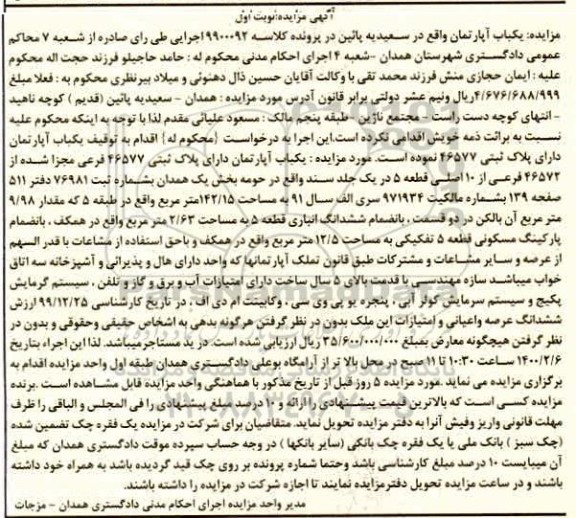 آگهی مزایده/نوبت اول
مزایده: یکباب آپارتمان واقع در سعیدیه پائین در پرونده کلاسه ۹۹۰۰۰۹۲ اجرایی طی رای صادره از شعبه ۷ محاکم
عمومی دادگستری شهرستان همدان –شعبه ۴ اجرای احکام مدنی محکوم له : حامد حاجیلو فرزند حجت اله محکوم
علیه : ایمان حجازی منش فرزند محمد تقی با وکالت آقایان حسین ذال دهنوئی و میلاد بیرنظری محکوم به : فعلا مبلغ
۴/۶۷۶/۶۸۸/۹۹۹ریال ونیم عشر دولتی برابر قانون آدرس مورد مزایده : همدان - سعیدیه پاتین (قدیم ) کوچه ناهید
- انتهای کوچه دست راست - مجتمع ناژین -طبقه پنجم مالک : مسعود علیاتی مقدم لذا با توجه به اینکه محکوم علیه
نسبت به برائت ذمه خویش اقدامی نکرده است.این اجرا به درخواست {محکوم له} اقدام به توقیف یکباب آپارتمان
دارای پلاک ثبتی ۴۶۵۷۷ نموده است. مورد مزایده : یکباب آپارتمان دارای پلاک ثبتی ۴۶۵۷۷ فرعی مجزا شده از
۴۶۵۷۲ فرعی از ۱۰ اصلی قطعه ۵ در یک جلد سند واقع در حومه بخش یک همدان بشماره ثبت ۷۶۹۸۱ دفتر ۵۱۱
صفحه ۱۳۹ بشماره مالکیت ۹۷۱۹۳۴ سری الف سال ۹۱ به مساحت ۱۴۲/۱۵متر مربع واقع در طبقه ۵ که مقدار ۹/۹۸
متر مربع آن بالکن در دو قسمت ، بانضمام ششدانگ انباری قطعه ۵ به مساحت ۲/۶۳ متر مربع واقع در همکف ، بانضمام
پارکینگ مسکونی قطعه ۵ تفکیکی به مساحت ۱۲/۵ متر مربع واقع در همکف و باحق استفاده از مشاعات با قدر السهم
از عرصه و سایر مشاعات و مشترکات طبق قانون تملک آپارتمانها که واحد دارای هال و پذیرائی و آشپزخانه سه اتاق
خواب میباشد سازه مهندسی با قدمت بالای ۵ سال ساخت دارای امتیازات آب و برق و گاز و تلفن ، سیستم گرمایش
پکیج و سیستم سرمایش کولر آبی ، پنجره یو پی وی سی ، وکابینت ام دی اف ، در تاریخ کارشناسی ۹۹/۱۲/۲۵ ارزش
ششدانگ عرصه واعیانی و امتیازات این ملک بدون در نظر گرفتن هرگونه بدهی به اشخاص حقیقی وحقوقی و بدون در
نظر گرفتن هیچگونه معارض بمبلغ ۳۵/۶۰۰/۰۰۰/۰۰۰ ریال ارزیابی شده است. در ید مستاجرمیباشد. لذا این اجراء بتاریخ
۱۴۰۰/۲/۶ ساعت ۱۰:۳۰ تا ۱۱ صبح در محل بالا تر از آرامگاه بوعلی دادگستری همدان طبقه اول واحد مزایده اقدام به
برگزاری مزایده می نماید .مورد مزایده ۵ روز قبل از تاریخ مذکور با هماهنگی واحد مزایده قابل مشاهده است .برنده
مزایده کسی است که بالاترین قیمت پیشنهادی را ارائه و ۱۰ درصد مبلغ پیشنهادی را فی المجلس و الباقی را ظرف
مهلت قانونی واریز وفیش آنرا به دفتر مزایده تحویل نماید. متقاضیان برای شرکت در مزایده یک فقره چک تضمین شده
(چک سبز ) بانک ملی یا یک فقره چک بانکی (سایر بانکها ) در وجه حساب سپرده موقت دادگستری همدان که مبلغ
آن میبایست ۱۰ درصد مبلغ کارشناسی باشد وحتما شماره پرونده بر روی چک قید گردیده باشد به همراه خود داشته
باشند و در ساعت مزایده تحویل دفترمزایده نمایند تا اجازه شرکت در مزایده را داشته باشند.
مدیر واحد مزایده اجرای احکام مدنی دادگستری همدان - مزجات